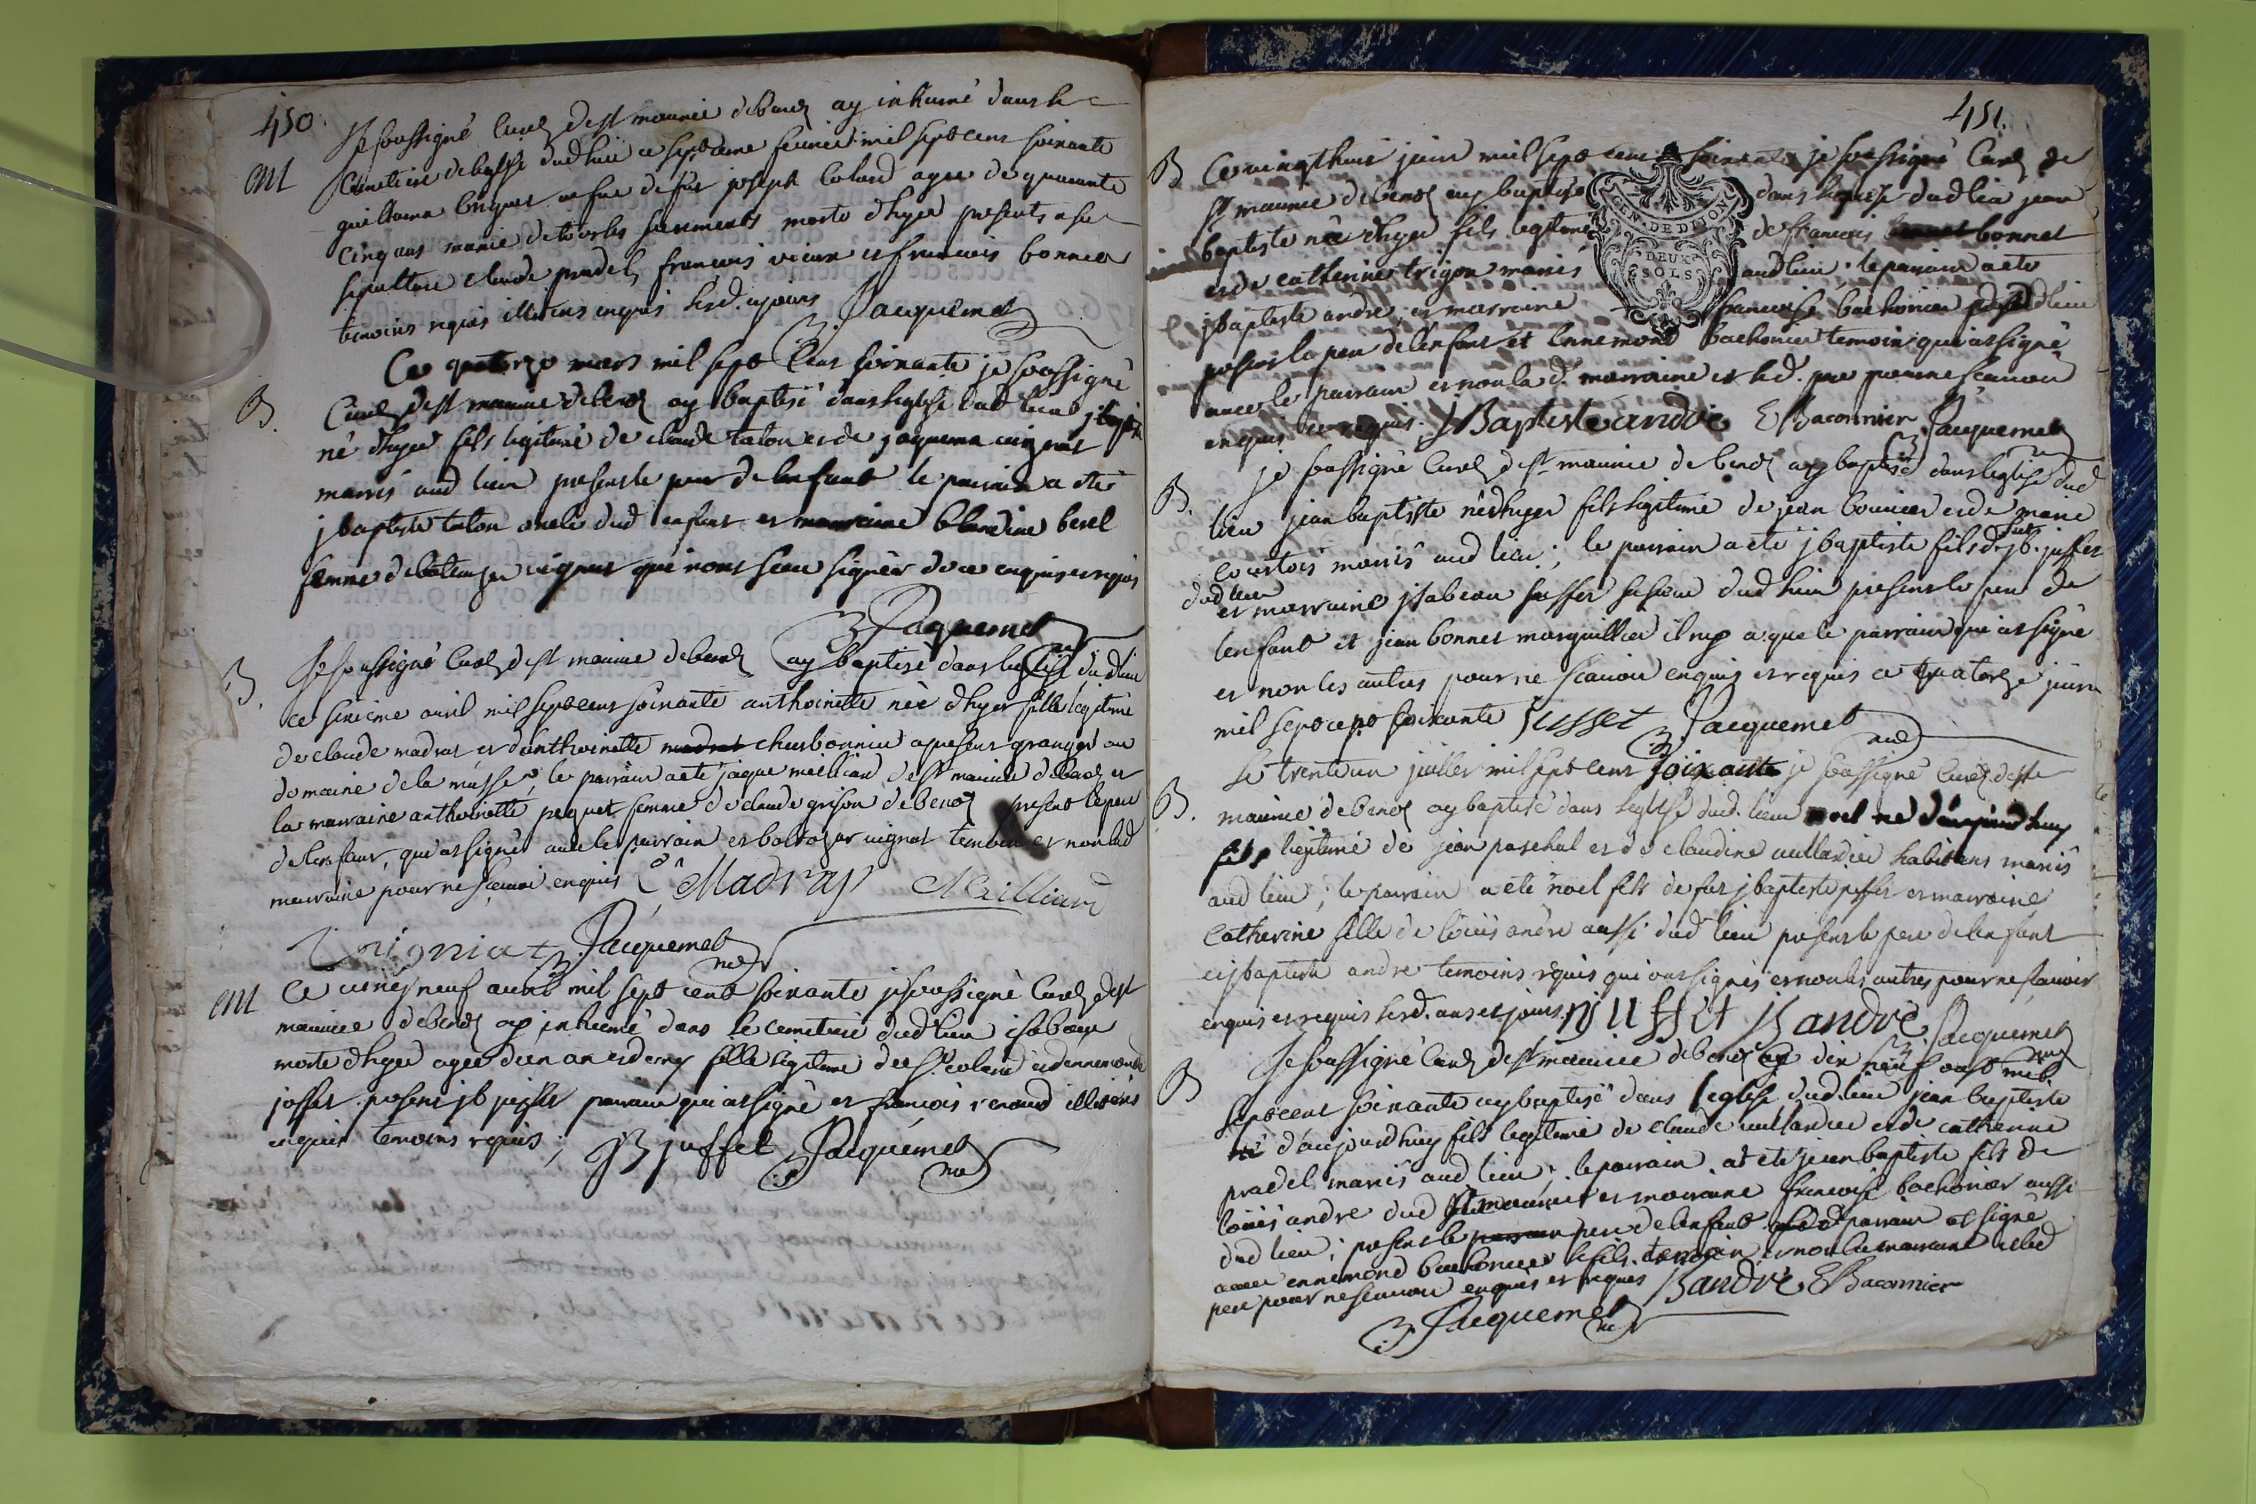 450
Je soussigné Curé de st maurice de benot ay inhumé dans le
M
Cimetiere de leglise dud lieu ce septieme fevrier mil sept cens soixante
guillauma vefue de fut joseph Coland agee de quarante
Cinq ans munie de tous les sacrements morte d'hyer presents a sa
sepulture claude pradel, francois et francois bonnet
temoins requis illiteres enquis les d. an et jours Jacquemet
Ce quatorze mars mil sept Cens soixante je soussigné
B.
Curé de st maurice de benot ay baptisé dans leglise dud lieu jbaptiste
né d'hyer fils legitime de claude talon et de jaquema
mariés aud lieu present le pere de lenfant le parrain a eté
jbaptiste talon oncle dud enfant et marraine Claudine berel
femme de qui n'ont sceu signer de ce enquis et requis
Jacquemet
B.
Je soussigné Curé de st maurice de benot ay baptisé dans leglise dudlieu
ce sixieme avril mil sept cens soixante anthoinette née d'hyer fille legitime
de claude madras et d'anthoinette charbonnier a present granger au
domaine de la musse, le parrain a eté jaque meilliard de st maurice de benot et
la marraine anthoinette pequet femme de claude grison de benot present le pere
de lenfant, qui a signé avec le parrain et baltazar uigniat temoin et non lad
marraine pour ne scavoir enquis C Madras Meilliard
Uigniat Jacquemet
M
Ce vingt neuf avril mil sept cent soixante je soussigné Curé de st
maurice de benot ay inhumé dans le cemetiere dud lieu isabeau
morte d'hyer agee d'un an et demy fille legitime de coland et dennemonde
juffet present jb juffet parrain qui a signé et francois renaud illiteres
enquis temoins requis; JB juffet Jacquemet
451.
B
Ce vingt huit juin mil sept cens soixante je soussigné Curé de
st maurice de benot ay baptisé dans leglise dud lieu jean
baptiste né d'hyer fils legitime de francois bonnet
et de catherine trigon mariés aud lieu; le parrain a eté
jbaptiste andré, et marraine francoise bachonier dud lieu
GEN. DE DIJON
DEUX
SOLS
present le pere de lenfant et Ennemond bachonier temoin qui a signé
avec le parrain et non la d. marraine et led. pere pour ne scavoir
enquis et requis. JBaptiste andré E Baconnier Jacquemet
B.
je soussigné Curé de st maurice de benot ay baptisé dans leglise dud
lieu jean baptiste né d'hyer fils legitime de jean bouvier et de marie
courtois mariés aud lieu; le parrain a eté jbaptiste fils de fut jb. juffet
dud lieu
et marraine isabeau juffet sa soeur dud lieu present le pere de
lenfant et jean bonnet marguillier il n'y a que le parrain qui a signé
et non les autres pour ne scavoir enquis et requis ce quatorze juin
mil sept cens soixante jusset Jacquemet
B.
Le trente un juillet mil sept cens soixante je soussigné Curé de st
maurice de benot ay baptisé dans leglise dud. lieu noel né d'aujourd'huy
fils legitime de jean paschal et de claudine uullardier habitans mariés
aud lieu; le parrain a eté noel fils de fut jbaptiste juffet et marraine
Catherine fille de loüis andré aussi dud lieu present le pere de lenfant
et jbaptiste andre temoins requis qui ont signés et non les autres pour ne scavoir
enquis et requis les d. an et jours. n juffet jB andré Jacquemet
B
Je soussigné Curé de st maurice de benot ce dix neuf aout mil
sept cens soixante ay baptisé dans leglise dud lieu jean baptiste
né d'aujourd'huy fils legitime de claude uullardier et de catherine
pradel mariés aud lieu; le parrain a eté jean baptiste fils de
loüis andre dud st maurice et marraine francoise bachonier aussi
dud lieu; present le pere de lenfant parrain a signé
avec ennemond bachonier le fils temoin et non la marraine et led
pere pour ne scavoir enquis et requis Bandré E Baconnier
Jacquemet